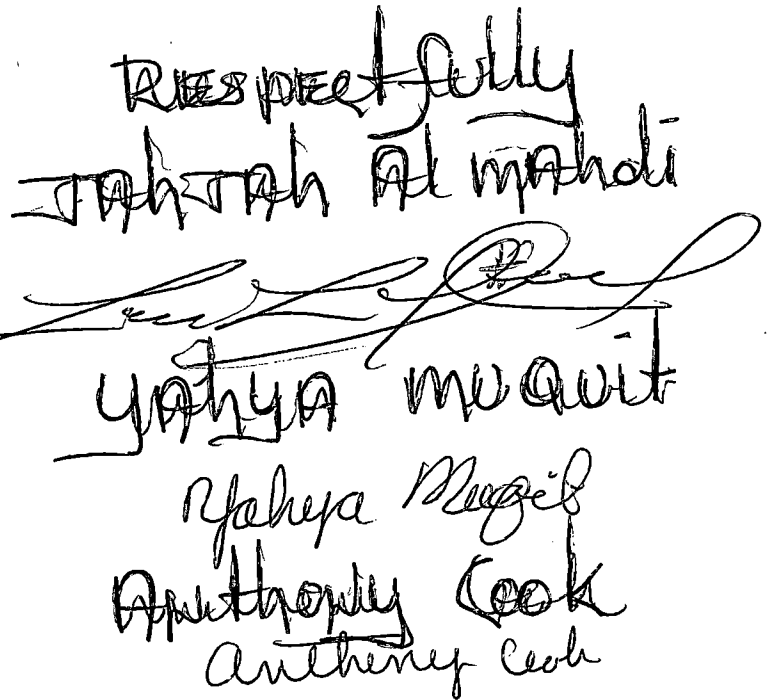 RESPECtfully
JAhJAh Al mAhdi
YAhYA MUQuit
Yahya Muqit
ANthoNy Cook
Anthony Cook